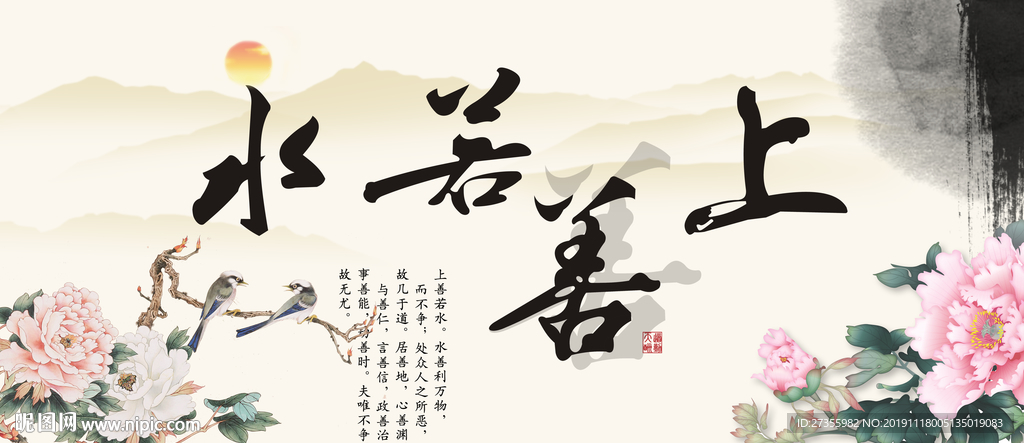 上善若水
上善若水。水善利万物，
而不争；处众人之所恶，
故几于道。居善地，心善渊
与善仁，言善信，政善治
事善能，动善时。夫唯不争
故无尤。
昵图网
www.nipic.com
ID:27355982 NO:20191118005135019083